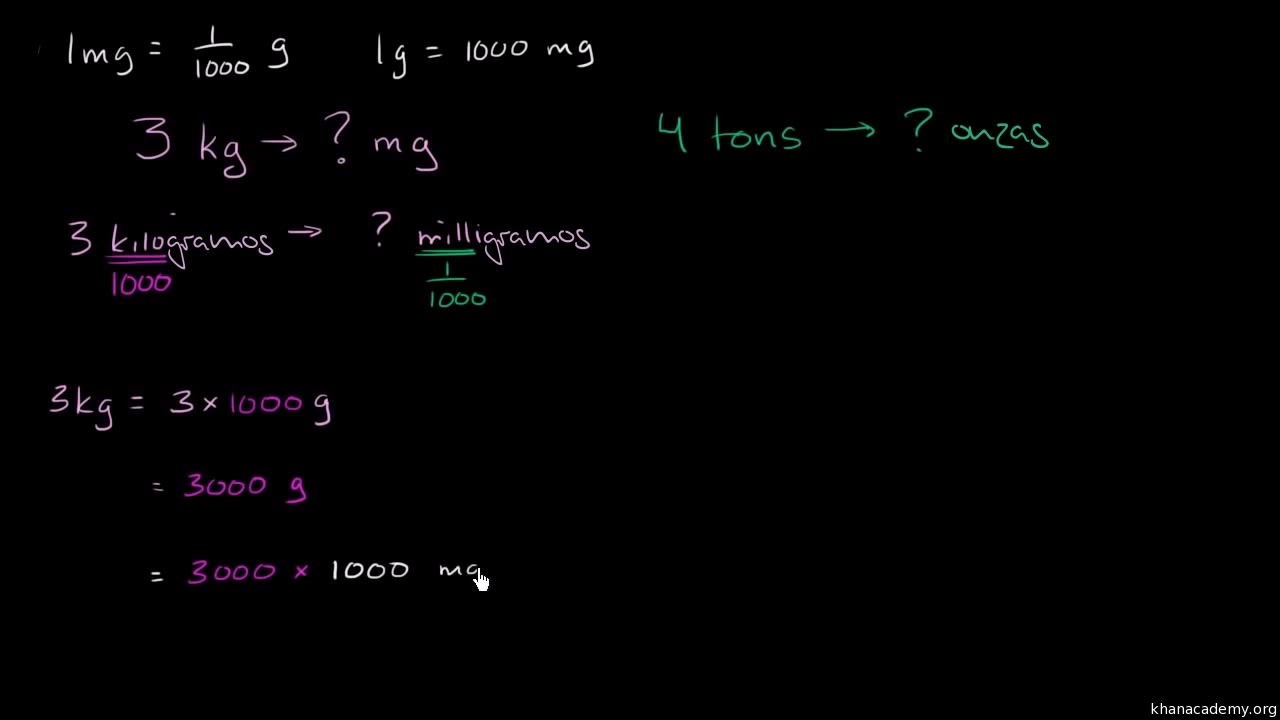 1mg = 1/1000 g    1g = 1000 mg
3 kg → ? mg
4 tons → ? onzas
3 kilogramos → ? milligramos
1000    1/1000
3kg = 3 × 1000 g
= 3000 g
= 3000 × 1000 mg
khanacademy.org